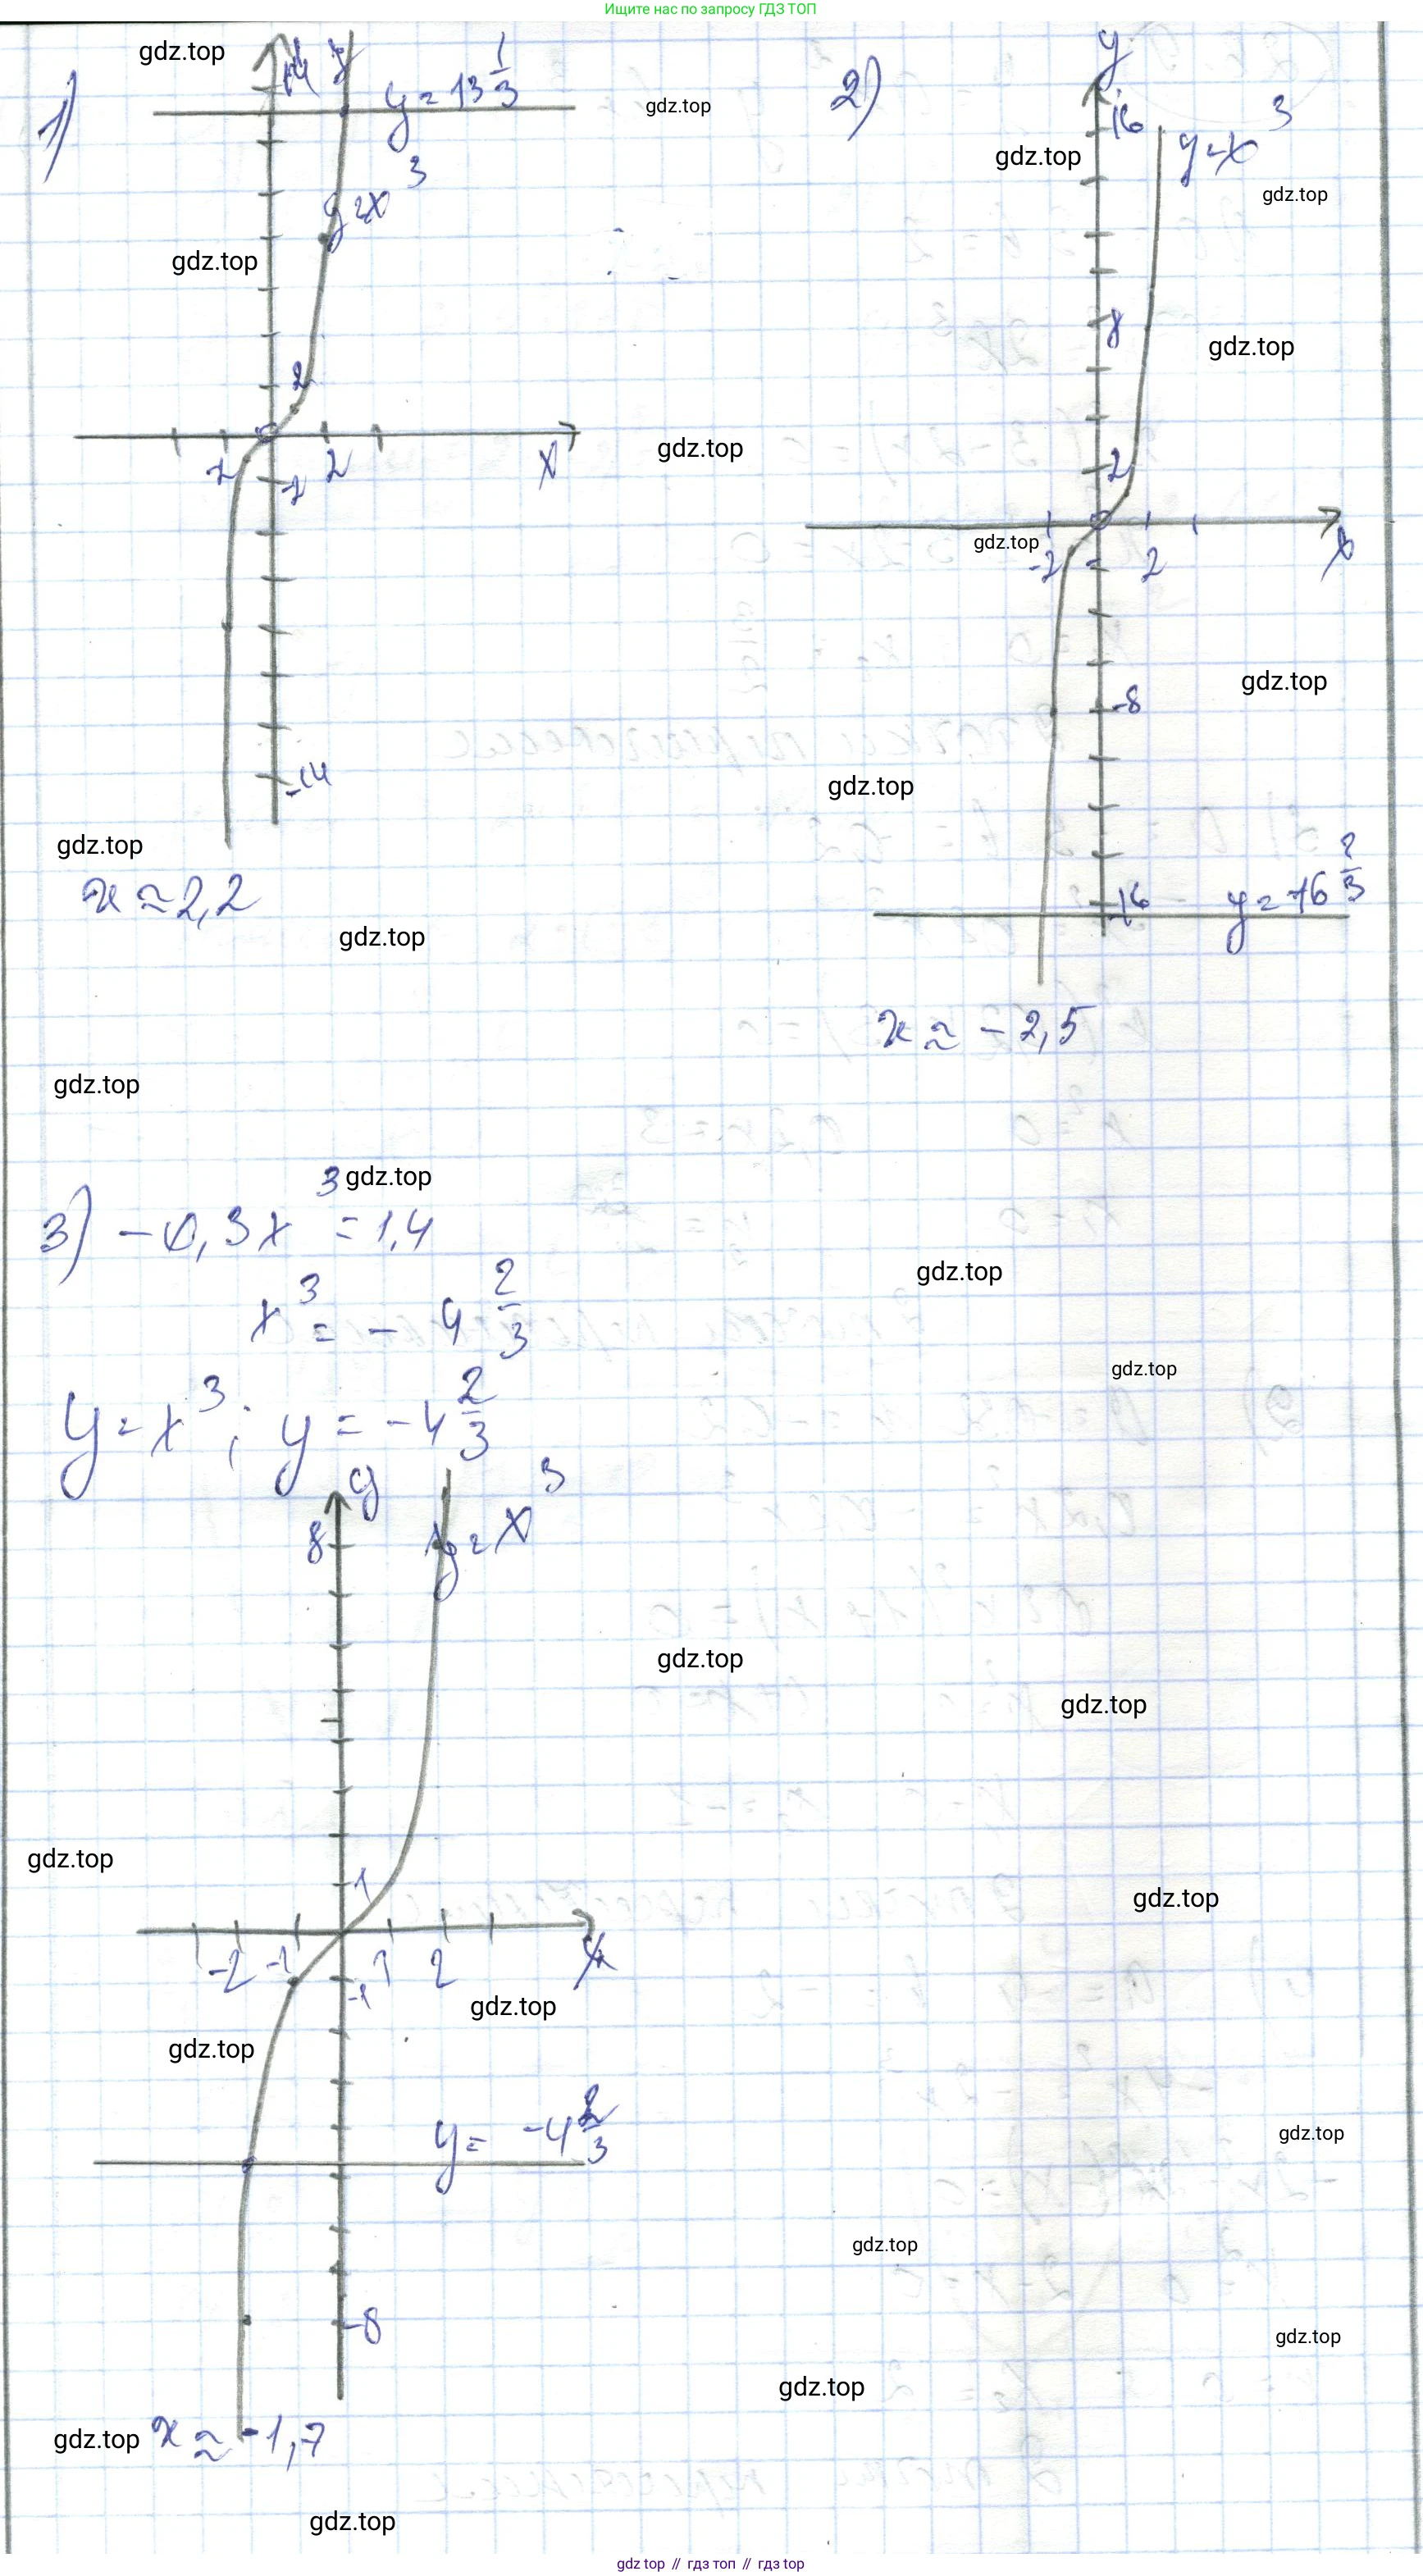 Ищите нас по запросу ГДЗ ТОП
gdz.top
1)
14 y
y = 13 1/3
gdz.top
y = x³
gdz.top
2
-2
2
-2
x
gdz.top
-14
gdz.top
x ≈ 2,2
gdz.top
2)
y
16
y = x³
gdz.top
gdz.top
8
gdz.top
2
gdz.top
-2
2
x
gdz.top
-8
gdz.top
-16
y = -16 2/3
x ≈ -2,5
gdz.top
gdz.top
3) -0,3x³ = 1,4
gdz.top
x³ = -4 2/3
gdz.top
y = x³; y = -4 2/3
y
8
y = x³
gdz.top
gdz.top
gdz.top
1
gdz.top
-2 -1
1 2
x
-1
gdz.top
gdz.top
y = -4 2/3
gdz.top
gdz.top
-8
gdz.top
gdz.top
gdz.top x ≈ -1,7
gdz.top
gdz top // гдз топ // гдз top